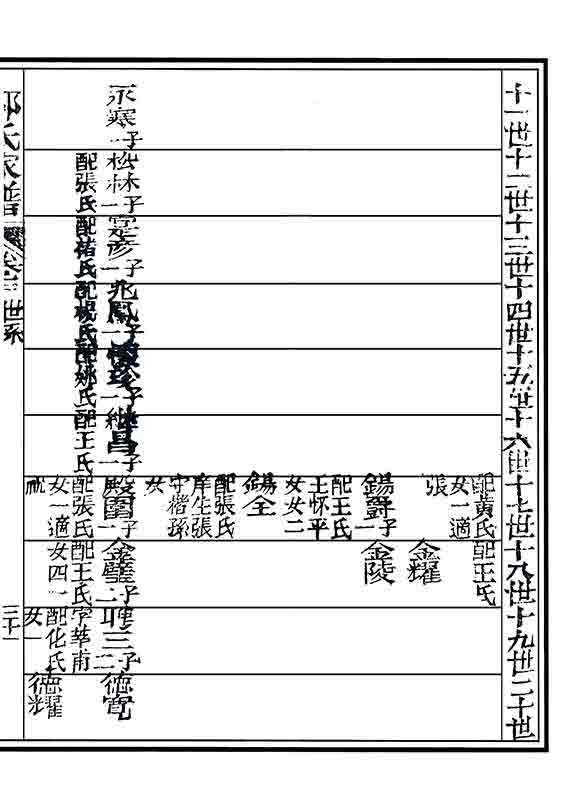 十一世十二世十三世十四世十五世十六世十七世十八世十九世二十世
配黃氏
女一適
張
配王氏
金耀
錫爵
子一
金陵
配王氏
王怀平
女女二
錫全
配張氏
庠生張
守楷孫
女
永寒
子一
松林
子一
配張氏
定彥
子一
配褚氏
兆鳳
子一
配楊氏
懷珍
子一
配姚氏
繼昌
子一
配王氏
殿閣
子一
配張氏
女一適
金璧
子二
配王氏
女四一
三
子二
字華甫
配化氏
女一
德寬
德耀
氏家譜
卷三世系
三十一